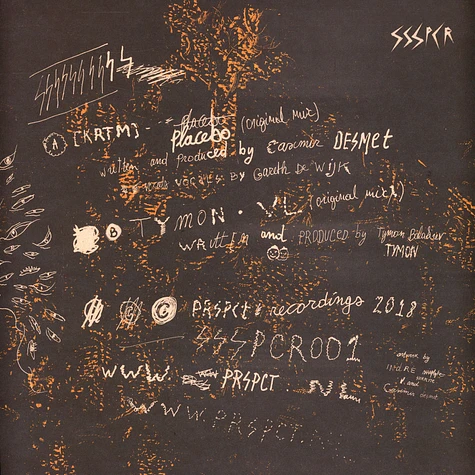 SSSPCR
A [KRTM] - Placebo (original mix)
Placebo
written and produced by Casimir DESMET
vocals by Gareth De Wijk
B TYMON · VL (original mix)
WRITTEN and PRODUCED by Tymon
TYMON
PRSPCT recordings 2018
SSSPCR001
WWW PRSPCT NL
artwork by
and
WWW.PRSPCT.